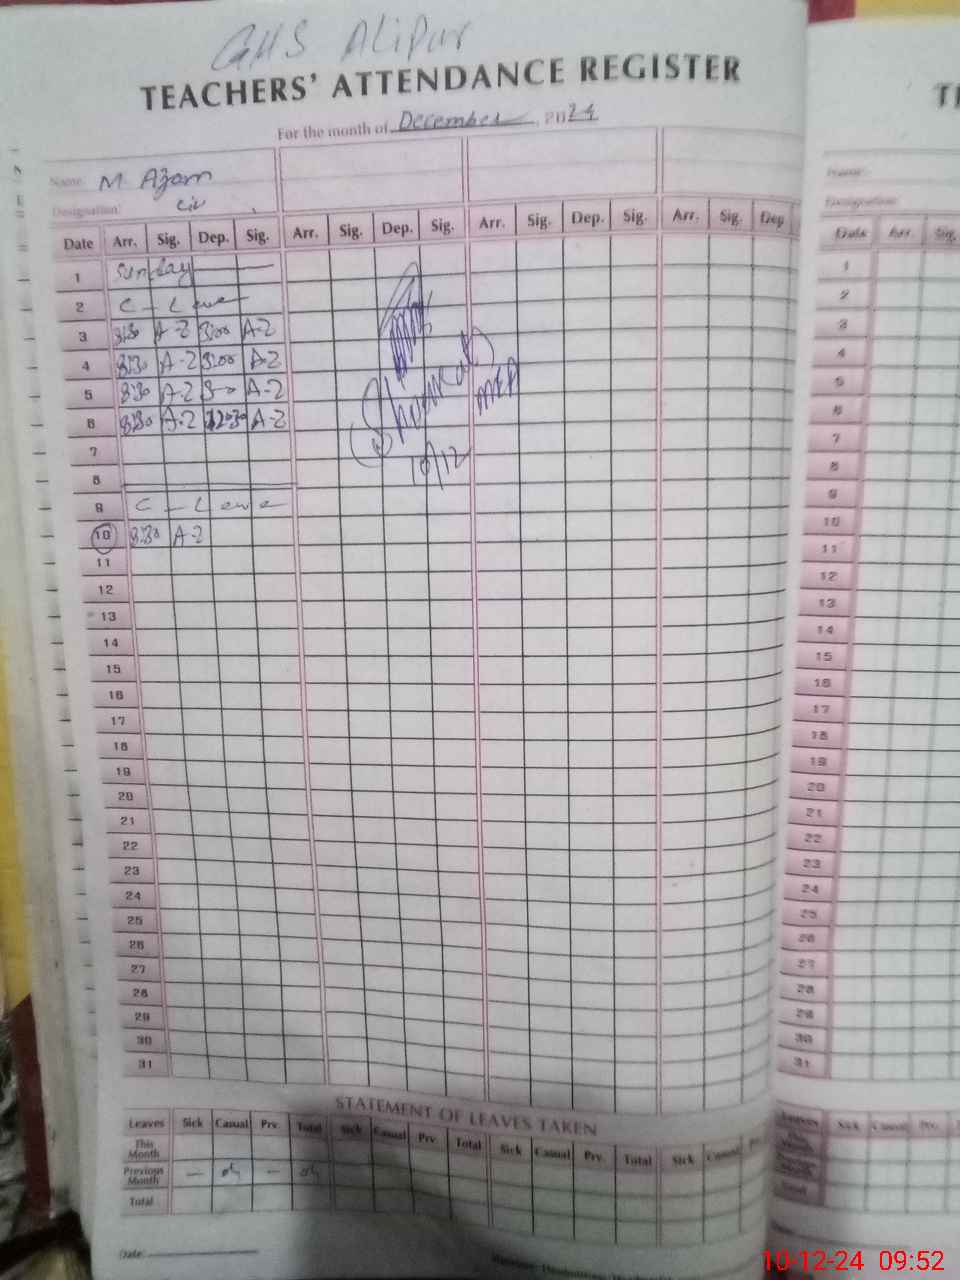 GHS Alipur
TEACHERS' ATTENDANCE REGISTER
For the month of December, 2024
Name: M. Azam
Designation: Civ
Date Arr. Sig. Dep. Sig. Arr. Sig. Dep. Sig. Arr. Sig. Dep. Sig. Arr. Sig. Dep
1 Sunday
2 C - Leave
3 8:30 A-Z 3:00 A-Z
4 8:30 A-Z 3:00 A-Z
5 8:30 A-Z A-Z
6 8:30 A-Z 12:30 A-Z
7
8
9 C - Leave
10 8:30 A-Z
11
12
13
14
15
16
17
18
19
20
21
22
23
24
25
26
27
28
29
30
31
Shaukat
MEA
10/12
STATEMENT OF LEAVES TAKEN
Leaves Sick Casual Prv. Total Sick Casual Prv. Total Sick Casual Prv. Total Sick Casual
This Month
Previous Month — —
Total
Date:
Name:
Designation:
Date Arr. Sig.
1
2
3
4
5
6
7
8
9
10
11
12
13
14
15
16
17
18
19
20
21
22
23
24
25
26
27
28
29
30
31
Leaves Sick Casual Prv.
This Month
Previous Month
Total
10-12-24 09:52